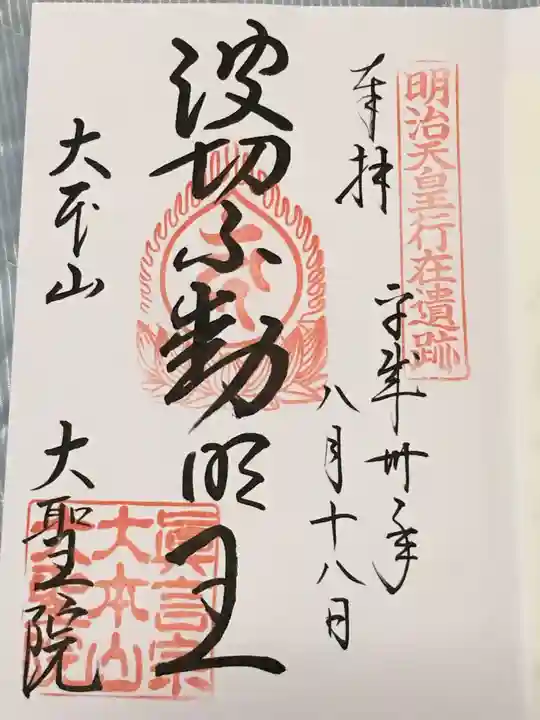 明治天皇行在遺跡
奉拝
平成卅年
八月十八日
波切不動明王
大本山
大聖院
眞言宗
大本山
大聖院